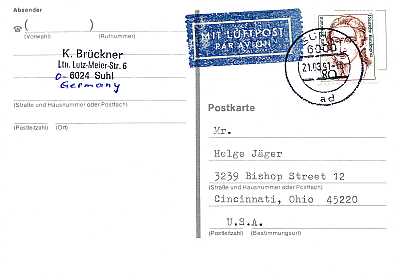 Absender
( )
(Vorwahl) (Rufnummer)
K. Brückner
Ltn. Lutz-Meier-Str. 6
O-6024 Suhl
Germany
(Straße und Hausnummer oder Postfach)
(Postleitzahl) (Ort)
MIT LUFTPOST
PAR AVION
SUHL
6000
21.03.91
ad
Postkarte
Mr.
Helge Jäger
3239 Bishop Street 12
(Straße und Hausnummer oder Postfach)
Cincinnati, Ohio 45220
U.S.A.
(Postleitzahl) (Bestimmungsort)